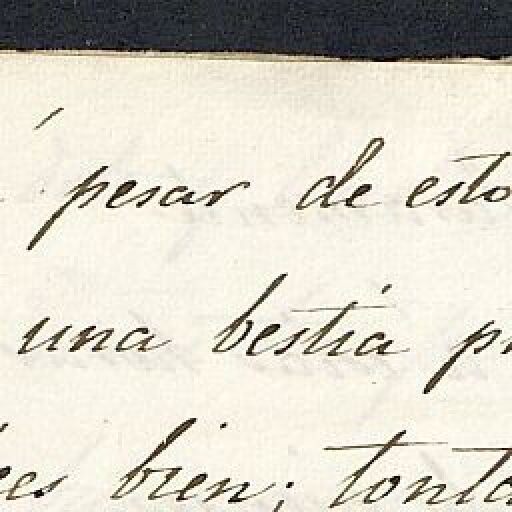 á pesar de esto
una bestia
bien; tonta